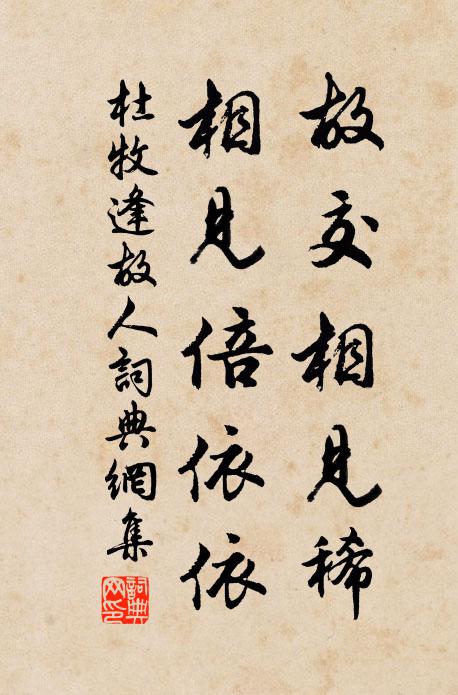 故交相見稀
相見倍依依
杜牧逢故人詞典網集
詞典網印